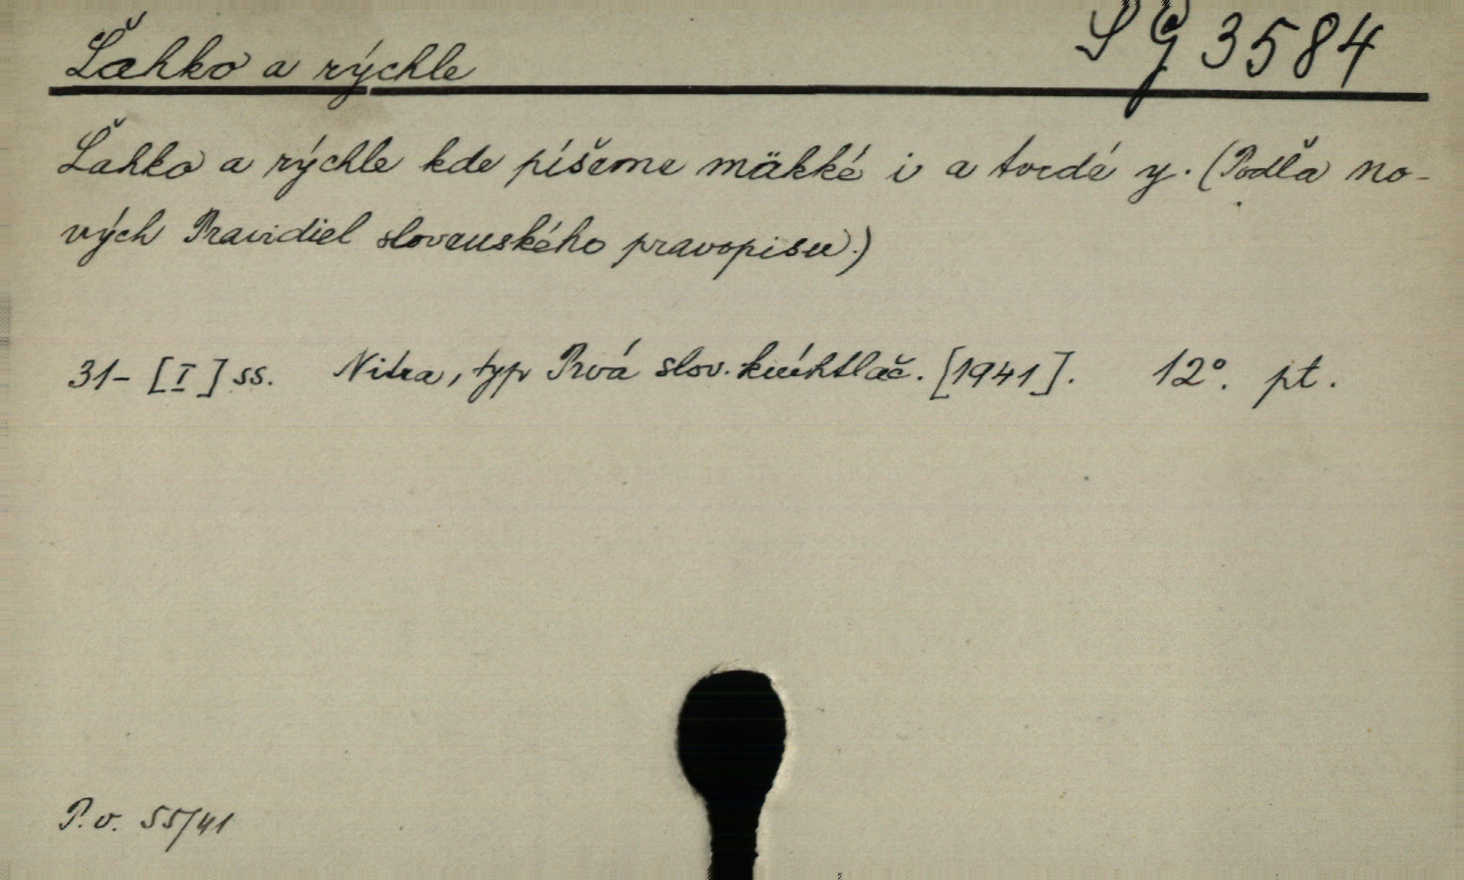 Ľahko a rýchle
SG 3584
Ľahko a rýchle kde píšeme mäkké i a tvrdé y. (Podľa no-
vých Pravidiel slovenského pravopisu.)
31-[I] ss. Nitra, typ Prvá slov. kníhtlač. [1941]. 12°. pt.
P.v. 55/41